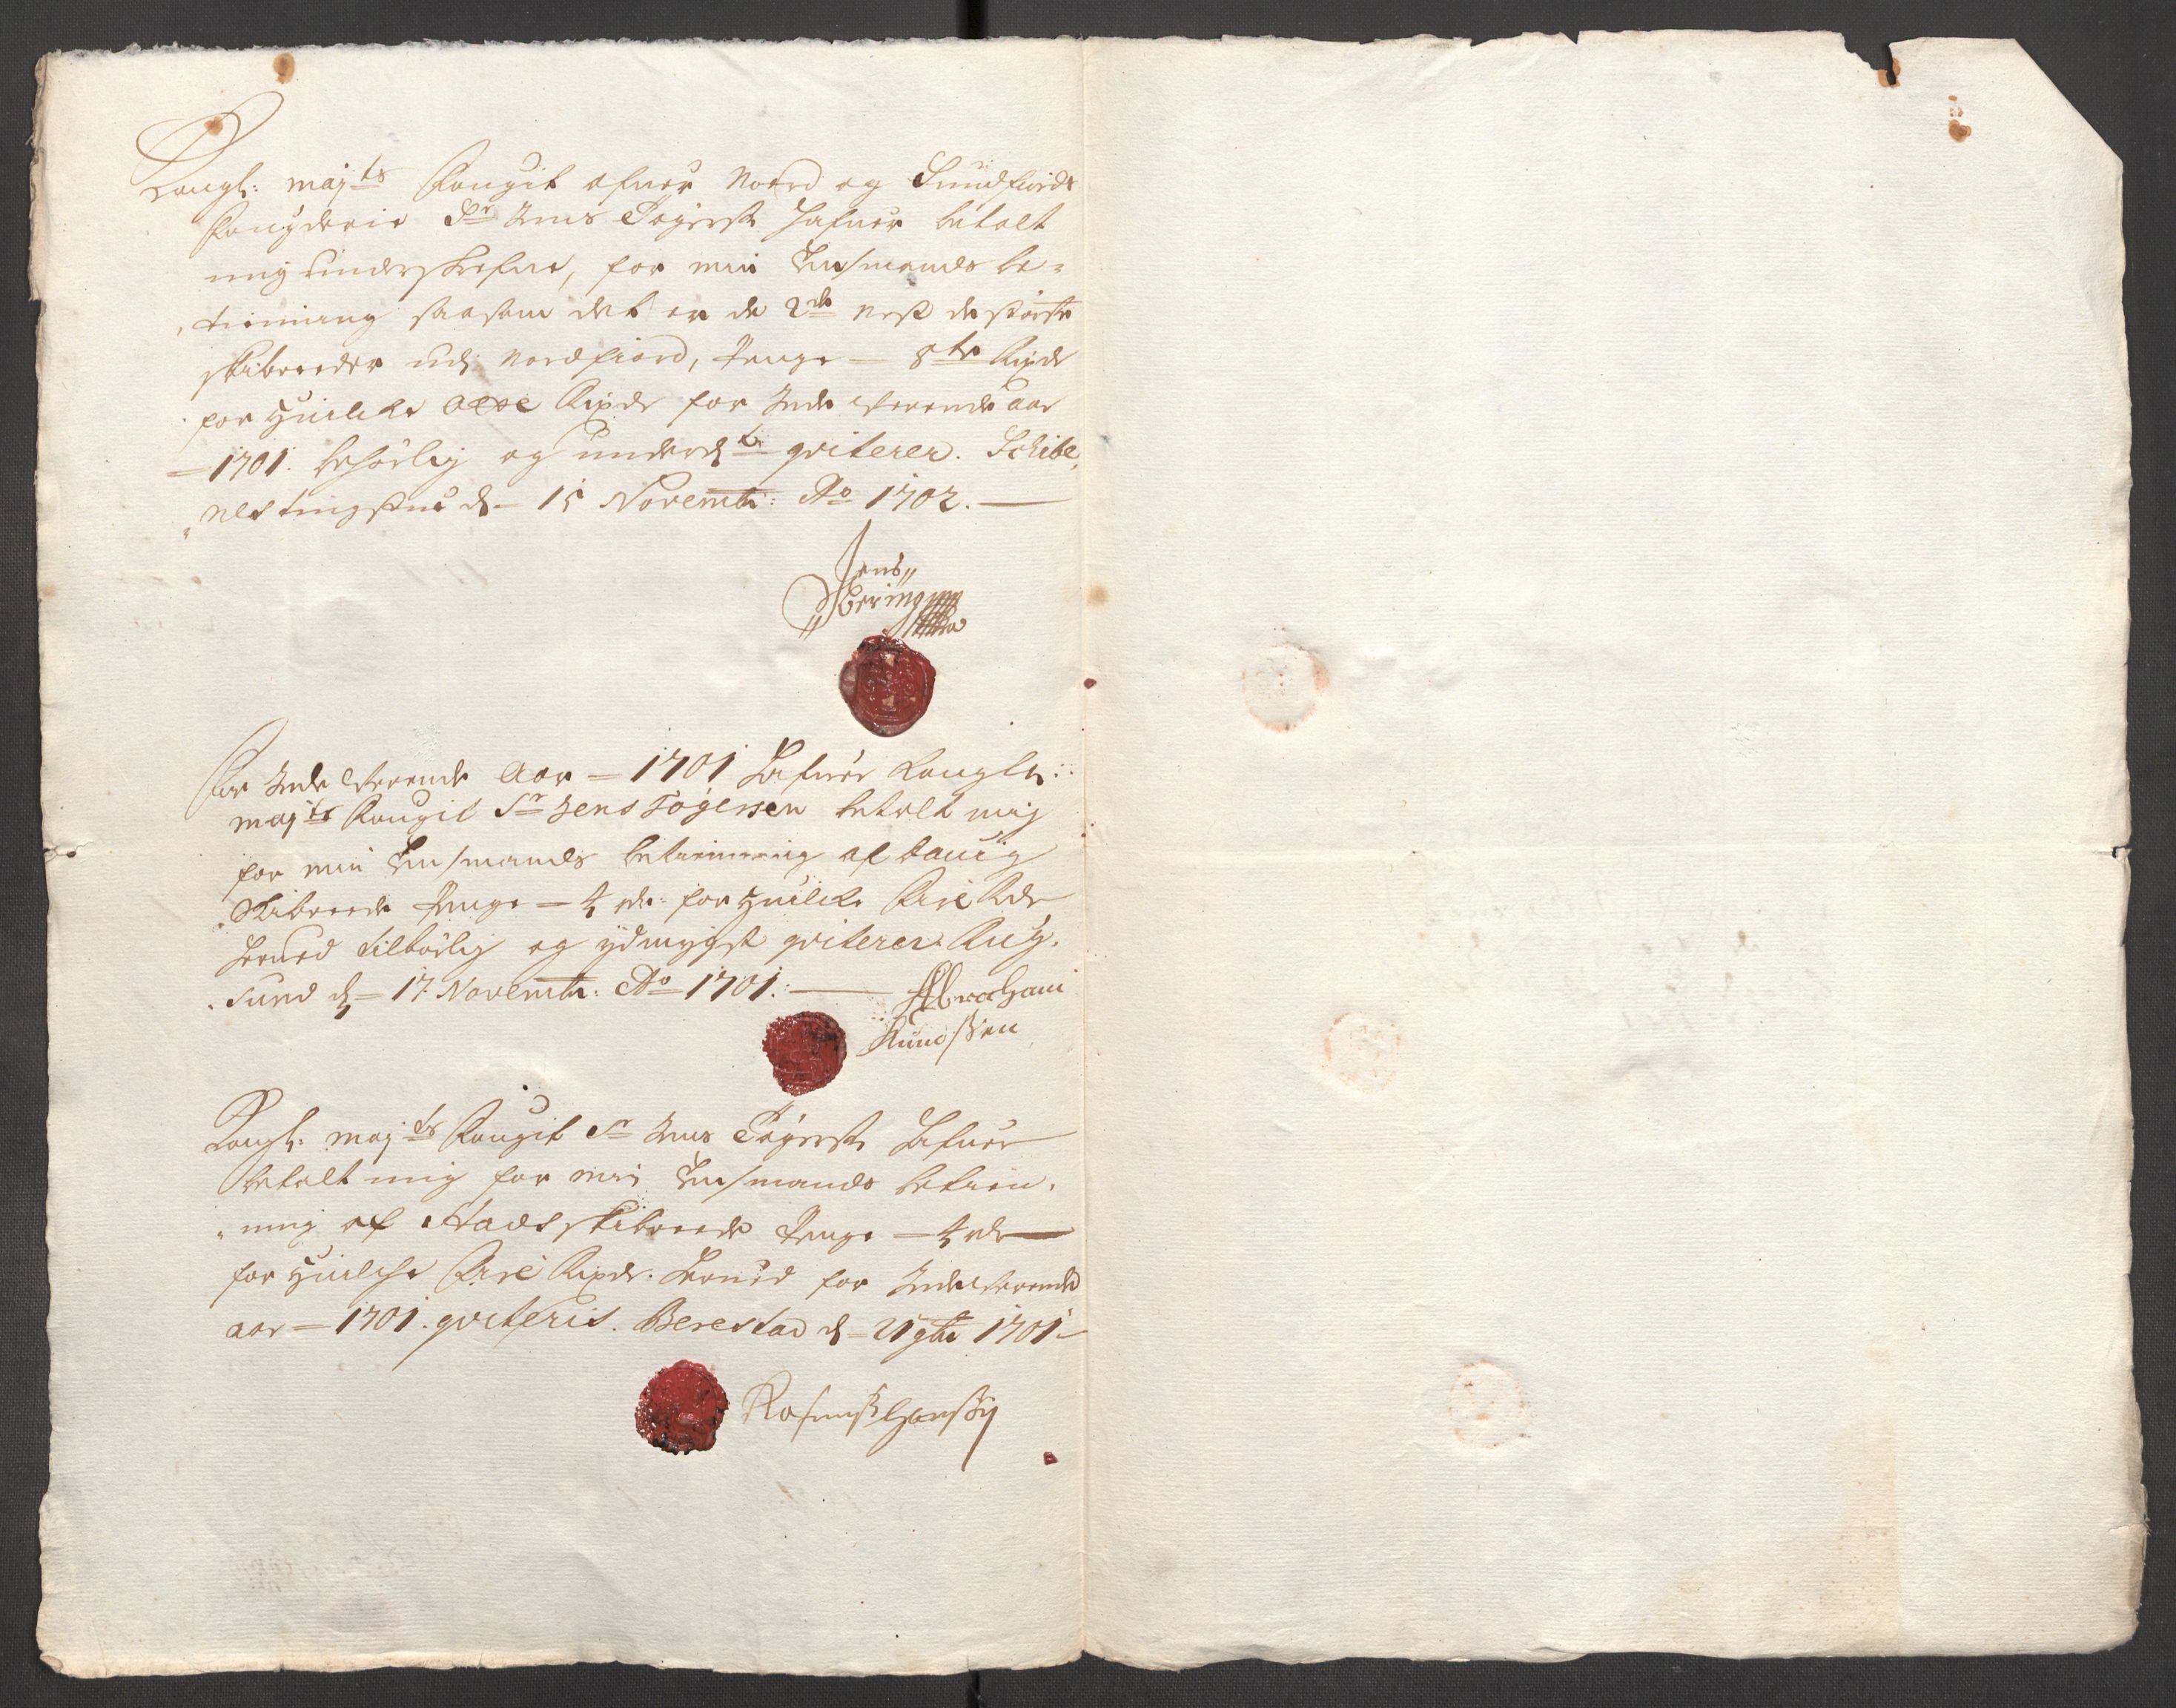 Kongl: maj:ts Fougit ofuer Noord og Sundfiords
Fougderie Sr Jens Tøgersen hafuer betalt
mig underskrefne, for min Lensmands be=
tienning saasom det er de 2de nest de største
skibreeder udj Nordfiord, Penge — 8te Rixdr
for huilcke Otte Rixdr for Inde werende aar
— 1701. behørlig og underd:t qviterer. Schibe
nes tingstue d — 15 Novembr: Ao 1702. —
Jens
Bering
For Inde werende Aar — 1701 Hafuer Kongl:
maj:ts Fougit Sr Jens Tøgersen betalt mig
for min Lensmands betienning af Dauig
Skibreede Penge — 4 rdr: for huilcke Fire Rdr
herued tilbørlig og ydmygst qviterer. Rug
sund d — 17 Novembr: Ao 1701. — Abraham
Knudssen
Kongl: maj:ts Fougit Sr Jens Tøgersen Hafuer
betalt mig for min Lensmands betien
ning af Stads skibreede Penge — 4 rdr —
for huilche Fire Rixdr. herued for Inde werende
aar — 1701. qviteris. Berestad d — 21 9br 1701
Rasmus Hanssøn